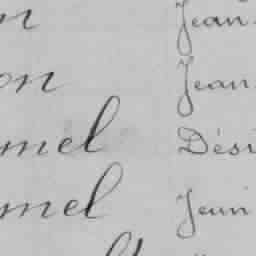 n Jean
on Jean
mel Dési
mel Jean